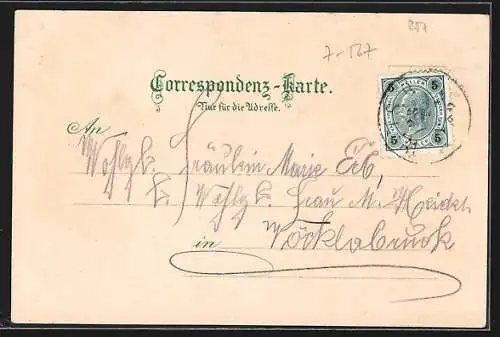 257
7-567
Correspondenz-Karte.
Nur für die Adresse.
5 5
5 5
An
Wohlgb. Fräulein Marie Erb,
Wohlgb. Frau M. Heidl
in Vöcklabruck